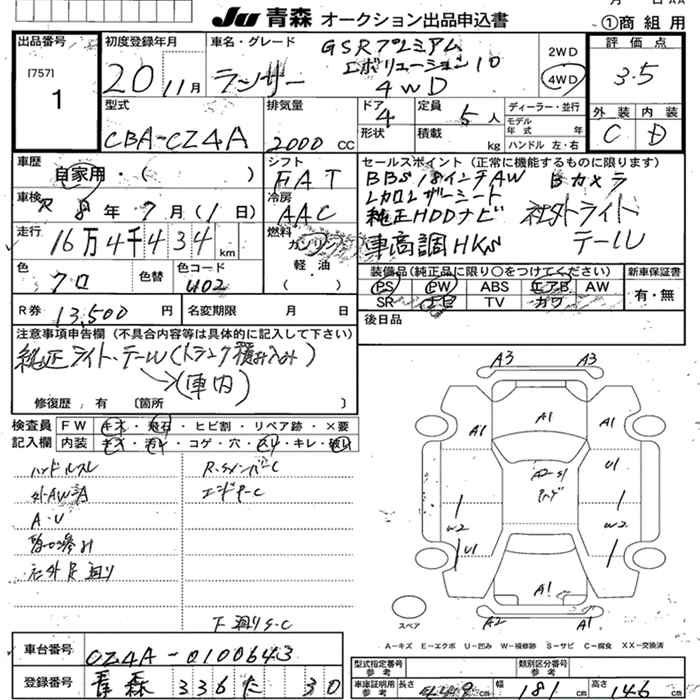 JU 青森 オークション出品申込書
①商 組 用
出品番号
[757]
1
初度登録年月
20 11月
車名・グレード
ランサー
GSRプレミアム
エボリューション10
4WD
2WD
4WD
評 価 点
3.5
外 装 内 装
C D
型式
CBA-CZ4A
排気量
2000 CC
ドア
4
形状
定員
5人
積載 kg
ディーラー・並行
モデル
年 式 年
ハンドル 左・右
車歴
自家用・( )
シフト
FAT
冷房
AAC
燃料
ガソリン
軽 油
( )
車検
R 8年 7月(1日)
走行
16万4千434km
色
クロ
色替
色コード
U02
R券
13,500 円
名変期限 月 日
セールスポイント(正常に機能するものに限ります)
BBS 18インチAW Bカメラ
Lカロレザーシート
純正HDDナビ 社外ライト
車高調 HKN テール
装備品(純正品に限り○をつけてください)
PS PW ABS エアB AW
SR ナビ TV カワ
新車保証書
有・無
後日品
注意事項申告欄(不具合内容等は具体的に記入して下さい)
純正ライト・テール(トランク積み込み)
→(車内)
修復歴,有 〔箇所 〕
検査員
記入欄
FW キズ・飛石・ヒビ割・リペア跡・×要
内装 キズ・汚レ・コゲ・穴・スリ・キレ・破レ
ハンドルスレ
A・U
下廻りS・C
A3 A3
A1
A1 A1
U1
W2 W2
U1
A1
A2 A1
スペア
A-キズ E-エクボ U-凹み W-補修跡 S-サビ C-腐食 XX-交換済
車台番号
CZ4A-0100643
登録番号
青森 336 た 30
型式指定番号
参考
類別区分番号
参考
車庫証明用
参考
長さ 449cm
幅 181cm
高さ 146cm